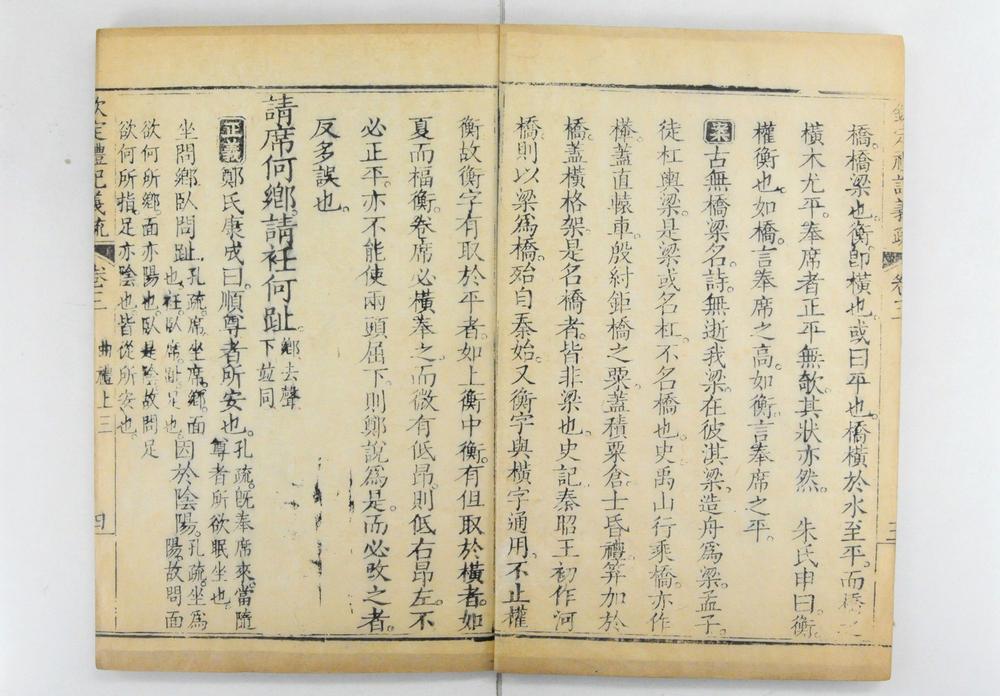 橋。橋梁也。衡卽橫也。或曰平也。橋橫於水至平。而橋
橫木尤平。奉席者正平無欹。其狀亦然。 朱氏申曰。衡。
權衡也。如橋。言奉席之高。如衡。言奉席之平。
案古無橋梁名。詩。無逝我梁。在彼淇梁。造舟爲梁。孟子。
徒杠輿梁。是梁或名杠。不名橋也。史禹山行乘橋。亦作
檋。蓋直轅車。殷紂鉅橋之粟。蓋積粟倉。士昏禮。笲加於
橋。蓋橫格架。是名橋者。皆非梁也。史記秦昭王初作河
橋。則以梁爲橋。殆自秦始。又衡字與橫字通用。不止權
衡。故衡字有取於平者。如上衡中衡。有但取於橫者。如
夏而福衡。卷席必橫奉之。而微有低昂。則低右昂左。不
必正平。亦不能使兩頭屈下。則鄭說爲是。而必攺之者。
反多誤也。
請席何鄉。請衽何趾。鄉去聲下竝同
正義鄭氏康成曰。順尊者所安也。孔疏。旣奉席來。當隨尊者所欲眠坐也。
坐問鄉。臥問趾。孔疏。席坐席。鄉面也。衽臥席。趾足也。因於陰陽。孔疏。坐爲陽。故問面
欲何所鄉。面亦陽也。臥是陰。故問足
欲何所指。足亦陰也。皆從所安也。
欽定禮記義疏 卷三 曲禮上三 四
卷三 三